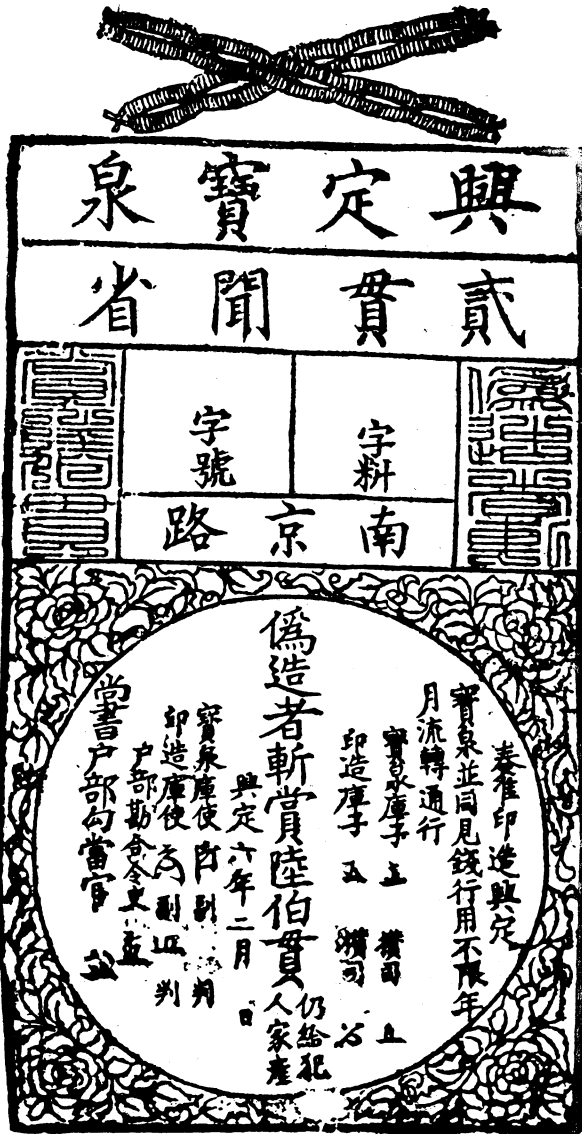 興定寶泉
貳貫聞省
偽造者斬
字料
字號
賞陸伯貫
南京路
奏准印造興定
寶泉並同見錢行用不限年
月流轉通行
寶泉庫子 攢司
印造庫子 攢司
偽造者斬賞陸伯貫
仍給犯
人家產
興定六年二月 日
寶泉庫使 副 判
印造庫使 副 判
户部勘合令史
尚書户部勾當官